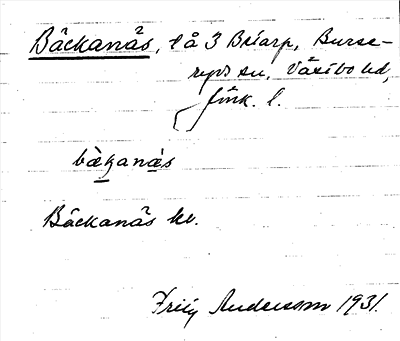 Bäckanäs, lå 3 Briarp, Burse-
ryds sn, Västbo hd,
Jönk. l.
bæganæs
Bäckanäs kv.
Andersson 1931.